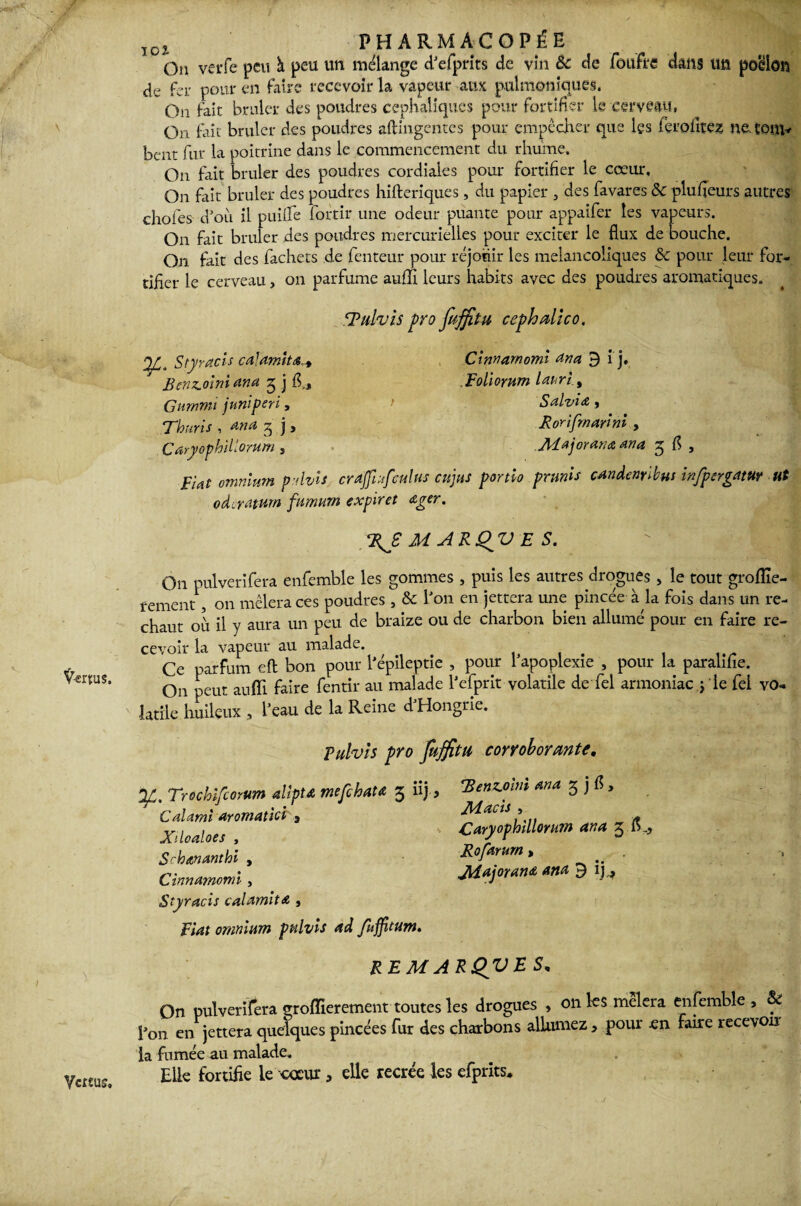 102 PHARMACOPÉE
On verſe peu à peu un mélange d'eſprits de vin & de ſoufre dans un poëlon
de fer pour en faire recevoir la vapeur aux pulmoniques.
On fait bruler des poudres cephaliques pour fortifier le cerveau.
On fait bruler des poudres aſtingentes pour empêcher que les feroſitez ne tom-
bent ſur la poitrine dans le commencement du rhume.
On fait bruler des poudres cordiales pour fortifier le cœur.
On fait bruler des poudres hiſteriques, du papier, des ſavates & pluſieurs autres
choſes d'où il puiſſe ſortir une odeur puante pour appaiſer les vapeurs.
On fait bruler des poudres mercurielles pour exciter le flux de bouche.
On fait des ſachets de ſenteur pour réjoüir les melancoliques & pour leur for-
tifier le cerveau, on parfume auſſi leurs habits avec des poudres aromatiques.
Pulvis pro ſuffitu cephalico.
♃. Styracis calamitæ,
Benzoini ana ʒ j ß,
Gummi juniperi,
Thuris, ana ʒ j,
Caryophillorum,
Cinnamomi ana ℈ i j.
Foliorum lauri,
Salviæ,
Roriſmarini,
Majoranæ ana ʒ ß,
Fiat omnium pulvis craſſiuſculus cujus portio prunis candentibus inſpergatur ut
odoratum fumum expiret æger.
REMARQVES.
On pulveriſera enſemble les gommes, puis les autres drogues, le tout groſſie-
rement, on mêlera ces poudres, & l'on en jettera une pincée à la fois dans un re-
chaut où il y aura un peu de braize ou de charbon bien allumé pour en faire re-
cevoir la vapeur au malade.
Vertus. Ce parfum eſt bon pour l'épileptie, pour l'apoplexie, pour la paraliſie.
On peut auſſi faire ſentir au malade l'eſprit volatile de ſel armoniac; le ſel vo-
latile huileux, l'eau de la Reine d'Hongrie.
Pulvis pro ſuffitu corroborante.
♃. Trochiſcorum aliptæ meſchatæ ʒ iij,
Calami aromatici,
Xiloaloes,
Schœnanthi,
Cinnamomi,
Styracis calamitæ,
Benzoini ana ʒ j ß,
Macis,
Caryophillorum ana ʒ ß,
Roſarum,
Majoranæ ana ℈ ij,
Fiat omnium pulvis ad ſuffitum.
REMARQVES.
On pulveriſera groſſierement toutes les drogues, on les mêlera enſemble, &
l'on en jettera quelques pincées ſur des charbons allumez, pour en faire recevoir
la fumée au malade.
Vertus. Elle fortifie le cœur, elle recrée les eſprits.